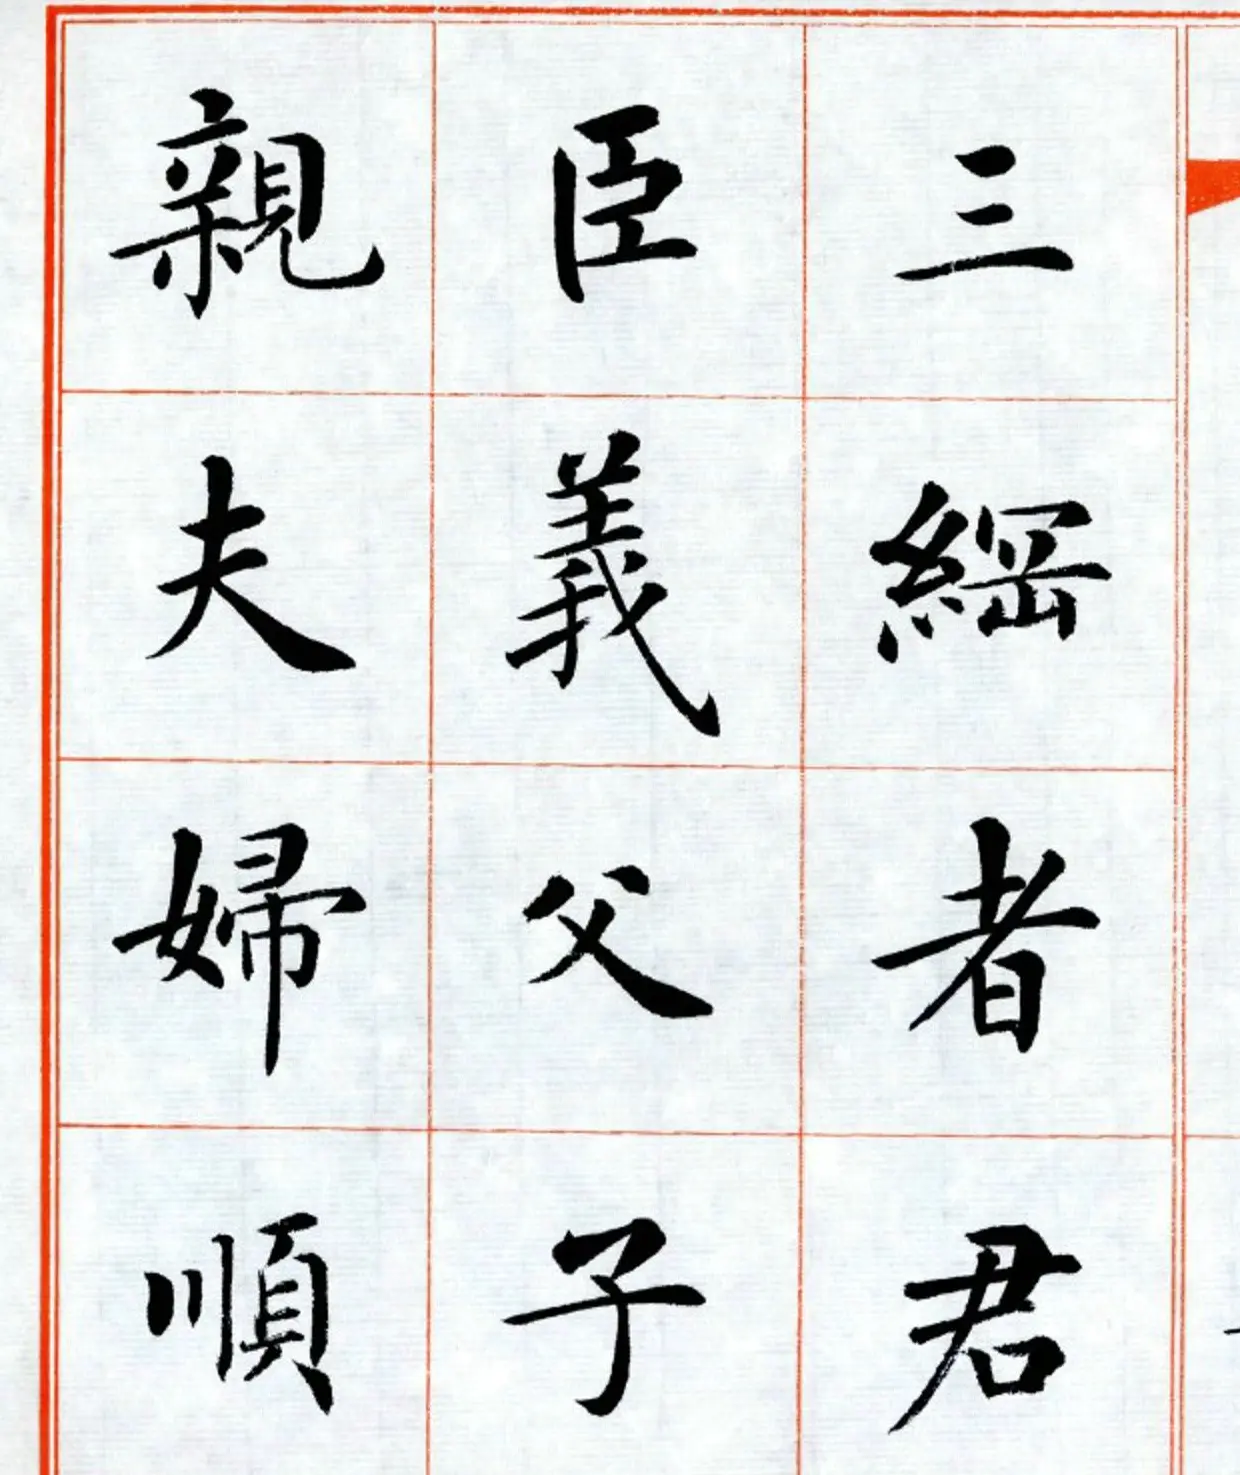 三綱者君
臣義父子
親夫婦順